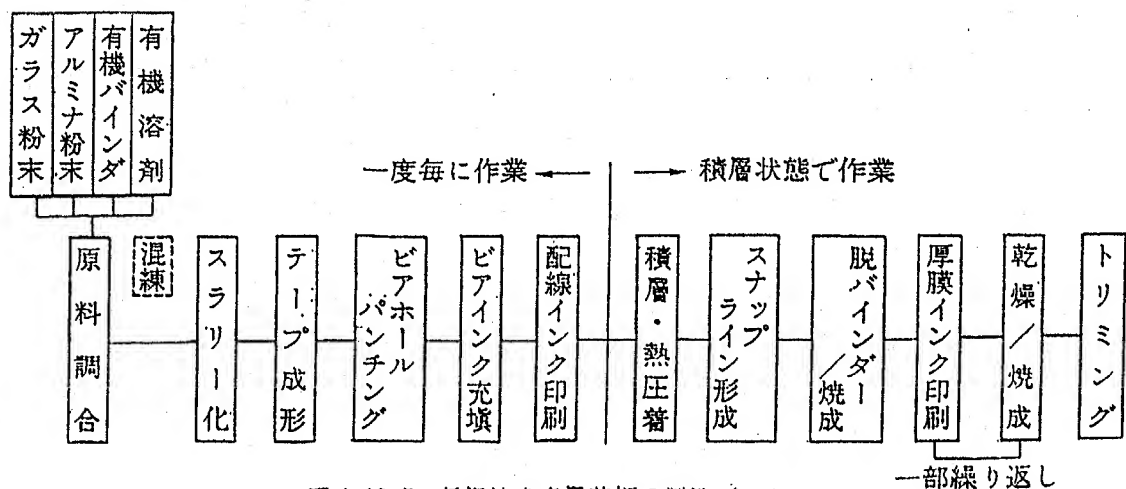 ガラス粉末
アルミナ粉末
有機バインダ
有機溶剤
一度毎に作業 ←
→ 積層状態で作業
原料調合
混練
スラリー化
テープ成形
ビアホール
パンチング
ビアインク充塡
配線インク印刷
積層・熱圧着
スナップ
ライン形成
脱バインダー
/焼成
厚膜インク印刷
乾燥/焼成
トリミング
一部繰り返し